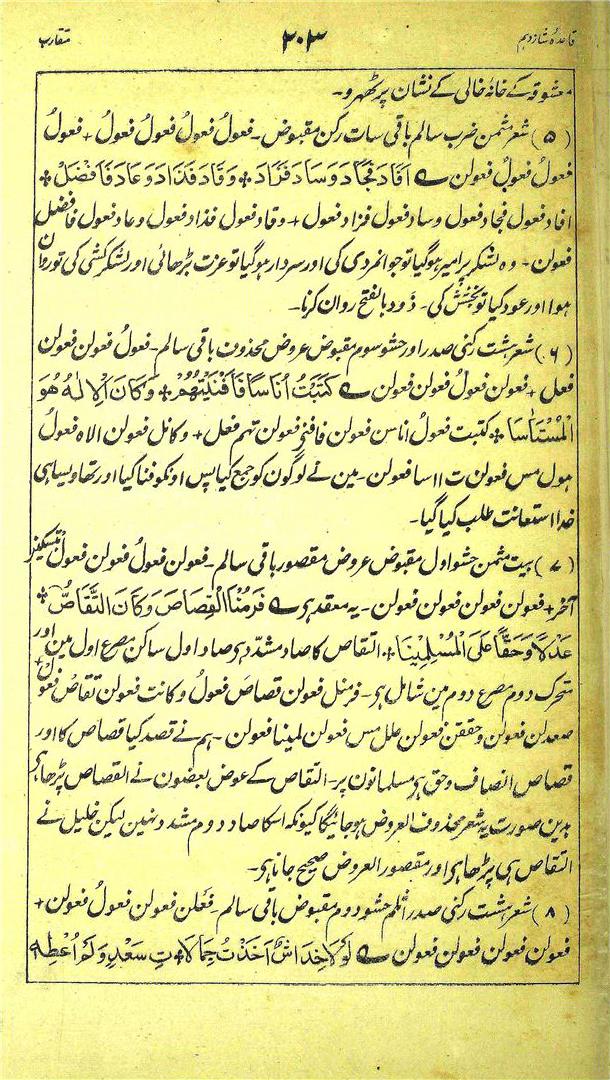 قاعدۂ شانزدہم ۲۰۳ متقارب
معشوقہ کے خانۂ خالی کے نشان پر ٹھہرو۔
(۵) شعر مثمن ضرب سالم باقی سات رکن مقبوض۔ فعولُ فعولُ فعولُ فعولُ + فعولُ
فعولُ فعولُ فعولن ے اَفَادَ فَجَادَ وَسَادَ فَزَادَ + وَقَادَ فَذَادَ وَعَادَ فَاَفْضَلْ +
افاد فعول فجاد فعول وساد فعول فزاد فعول + وقاد فعول فذاد فعول وعاد فعول فافضل
فعولن۔ وہ لشکر پر امیر ہوگیا تو جوانمردی کی اور سردار ہوگیا تو عزت بڑھائی اور لشکر کشی کی تو روان
ہوا اور عود کیا تو بخشش کی۔ ذود بالفتح روان کرنا۔
(۶) شعر ہشت رکنی صدر اور حشو سوم مقبوض عروض محذوف باقی سالم۔ فعولُ فعولن فعولن
فعل + فعولن فعولُ فعولن فعولن ے كَتَبْتُ اُنَاسًا فَاَفْنَيْتُهُمْ + وَكَانَ الْاِلٰهُ هُوَ
الْمُسْتَاسَا + کتبت فعولُ اناسن فعولن فافنی فعولن تہم فعل + وکانل فعولن الاہ فعولُ
ہول مس فعولن ت ااسا فعولن۔ مین نے لوگون کو جمع کیا پس اونکو فنا کیا اور تھا وہی
خدا استعانت طلب کیا گیا۔
(۷) بیت مثمن حشو اول مقبوض عروض مقصور باقی سالم۔ فعولن فعولُ فعولن فعول بتسکین
آخر + فعولن فعولن فعولن فعولن۔ یہ معقد ہے ے فَرُمْنَا الْقِصَاصَ وَكَانَ التَّقَاصُّ +
عَدْلًا وَحَقًّا عَلَى الْمُسْلِمِيْنَا + التقاص کا صاد مشدد ہے صاد اول ساکن مصرع اول مین اور
متحرک دوم مصرع دوم مین شامل ہے۔ فرمنل فعولن قصاصَ فعولُ وکانت فعولن تقاص فعول +
صعدلن فعولن وحققن فعولن علل مس فعولن لمینا فعولن۔ ہم نے قصد کیا قصاص کا اور
قصاص انصاف وحق ہے مسلمانون پر۔ التقاص کے عوض بعضون نے القصاص پڑھا ہے
بدین صورت یہ شعر محذوف العروض ہوجائیگا کیونکہ اسکا صاد دوم مشدد نہین لیکن خلیل نے
التقاص ہی پڑھا ہے اور مقصور العروض صحیح جانا ہے۔
(۸) شعر ہشت رکنی صدر اثلم حشو دوم مقبوض باقی سالم۔ فعْلن فعولن فعولُ فعولن +
فعولن فعولن فعولن فعولن ے لَوْلَا خِدَاشٌ اَخَذْتُ جِمَالَا + تِ سَعْدٍ وَلَمْ اُعْطِهٖ